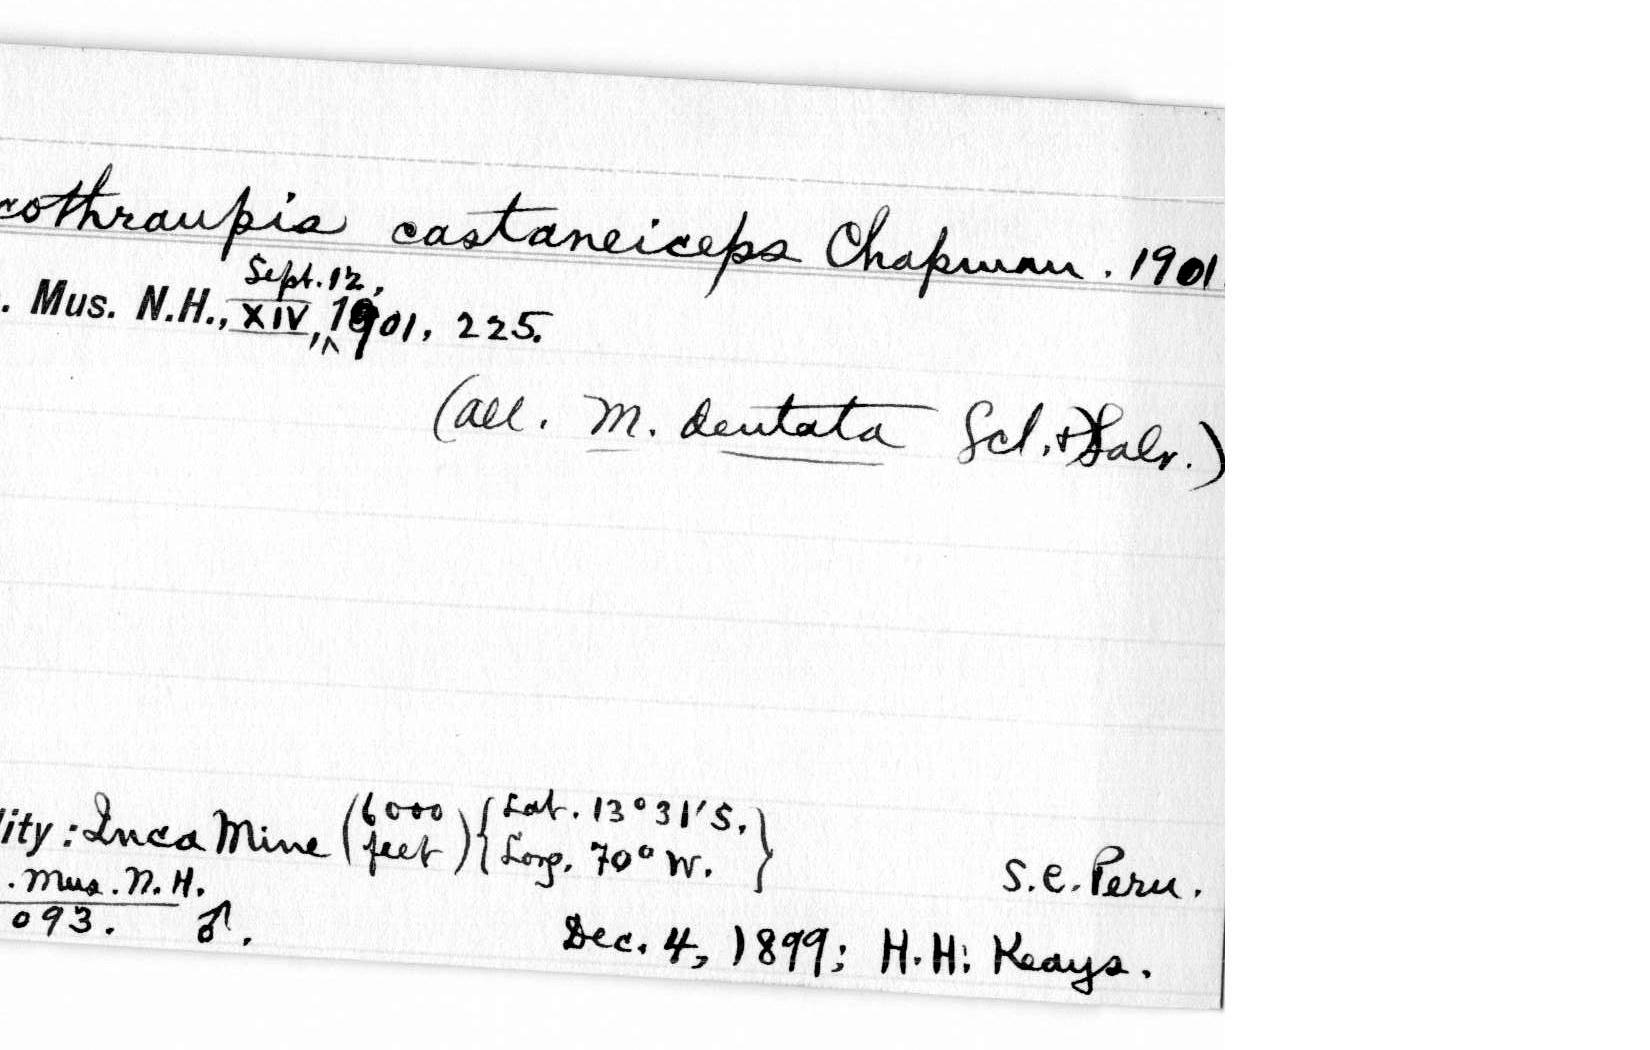 cothraupis castaneiceps Chapman. 1901.
Sept. 12,
. Mus. N.H., XIV, 1901, 225.
(all. M. dentata Scl. & Salv.)
lity: Inca Mine (6000 feet) {Lat. 13°31'S. Long. 70° W.} S.E. Peru.
. Mus. N. H.
093. ♂. Dec. 4, 1899; H. H. Keays.